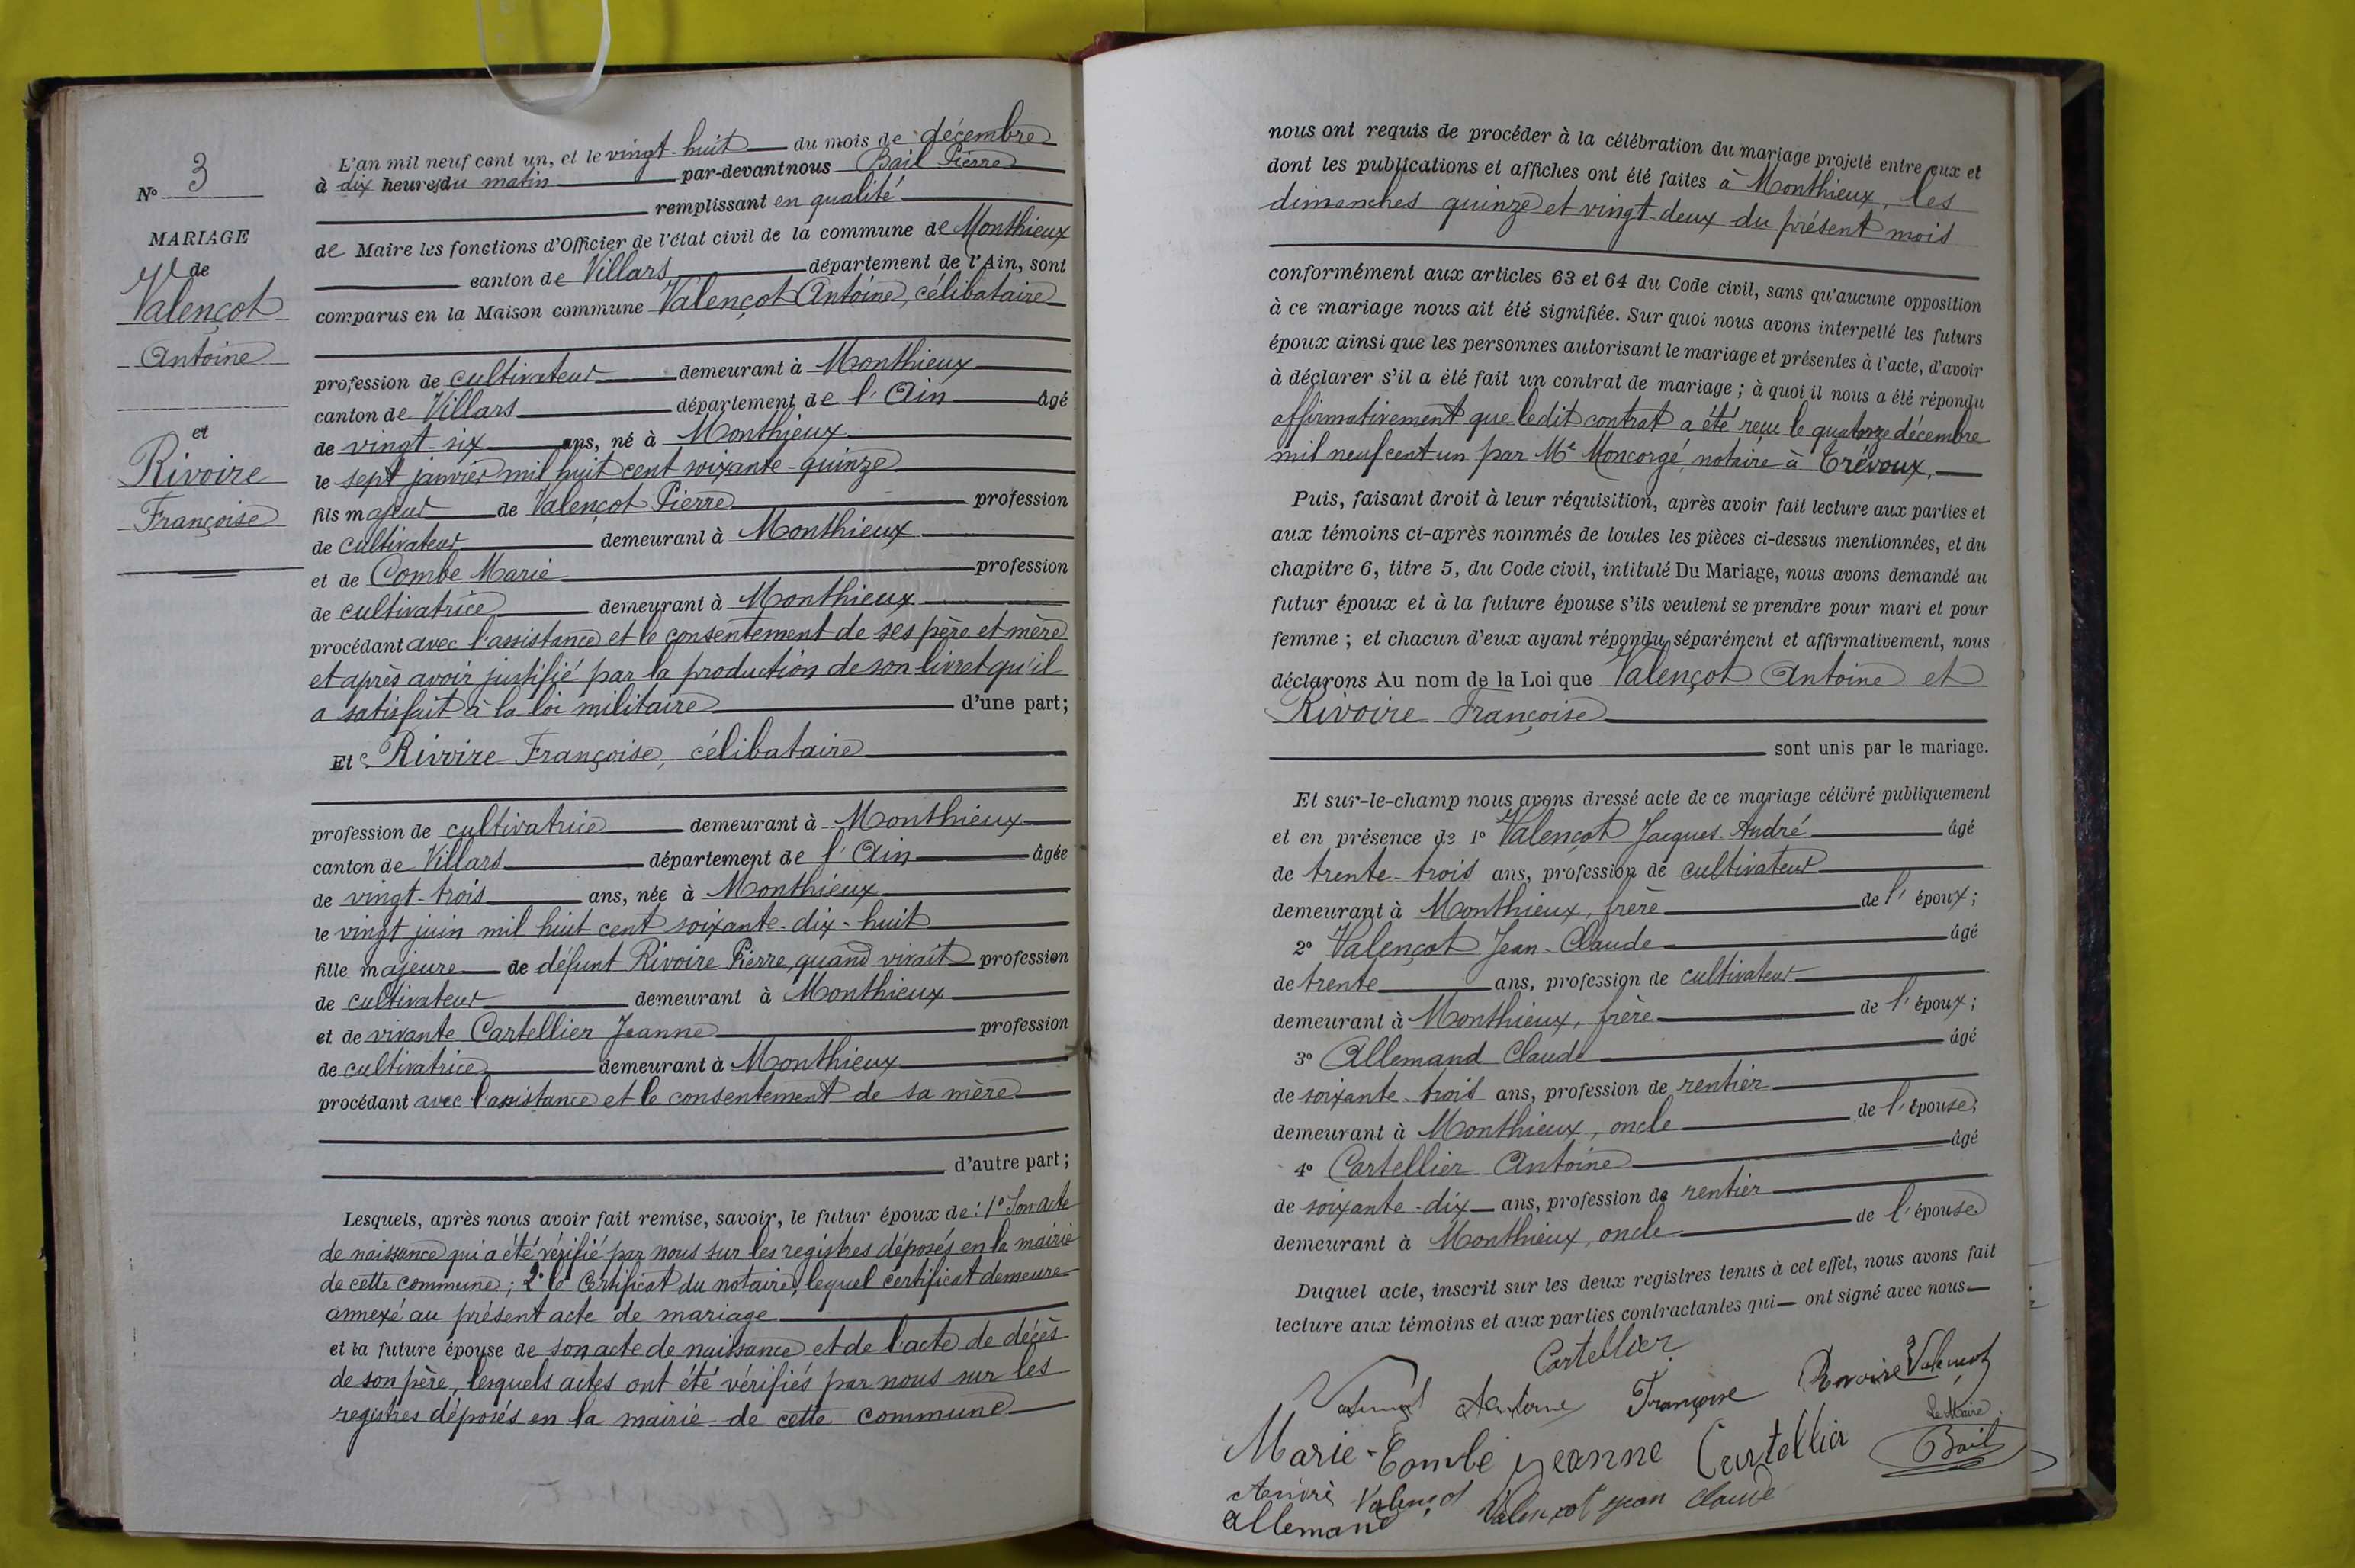 N° 3
MARIAGE
de
Valençot
Antoine
et
Rivoire
Françoise
L'an mil neuf cent un, et le vingt-huit du mois de décembre
à dix heures du matin par-devant nous Bail Pierre
remplissant en qualité
de Maire les fonctions d'Officier de l'état civil de la commune de Monthieux
canton de Villars département de l'Ain, sont
comparus en la Maison commune Valençot Antoine, célibataire
profession de cultivateur demeurant à Monthieux
canton de Villars département de l'Ain âgé
de vingt-six ans, né à Monthieux
le sept janvier mil huit cent soixante-quinze
fils majeur de Valençot Pierre profession
de cultivateur demeurant à Monthieux
et de Combe Marie profession
de cultivatrice demeurant à Monthieux
procédant avec l'assistance et le consentement de ses père et mère
et après avoir justifié par la production de son livret qu'il
a satisfait à la loi militaire d'une part;
Et Rivoire Françoise, célibataire
profession de cultivatrice demeurant à Monthieux
canton de Villars département de l'Ain âgée
de vingt-trois ans, née à Monthieux
le vingt juin mil huit cent soixante-dix-huit
fille majeure de défunt Rivoire Pierre, quand vivait profession
de cultivateur demeurant à Monthieux
et de vivante Cartellier Jeanne profession
de cultivatrice demeurant à Monthieux
procédant avec l'assistance et le consentement de sa mère
d'autre part;
Lesquels, après nous avoir fait remise, savoir, le futur époux de: 1° Son acte
de naissance qui a été vérifié par nous sur les registres déposés en la mairie
de cette commune; 2° le Certificat du notaire, lequel certificat demeure
annexé au présent acte de mariage
et la future épouse de son acte de naissance et de l'acte de décès
de son père, lesquels actes ont été vérifiés par nous sur les
registres déposés en la mairie de cette commune
nous ont requis de procéder à la célébration du mariage projeté entre eux et
dont les publications et affiches ont été faites à Monthieux, les
dimanches quinze et vingt-deux du présent mois
conformément aux articles 63 et 64 du Code civil, sans qu'aucune opposition
à ce mariage nous ait été signifiée. Sur quoi nous avons interpellé les futurs
époux ainsi que les personnes autorisant le mariage et présentes à l'acte, d'avoir
à déclarer s'il a été fait un contrat de mariage; à quoi il nous a été répondu
affirmativement que ledit contrat a été reçu le quatorze décembre
mil neuf cent un par Me Moncorgé, notaire à Trévoux,
Puis, faisant droit à leur réquisition, après avoir fait lecture aux parties et
aux témoins ci-après nommés de toutes les pièces ci-dessus mentionnées, et du
chapitre 6, titre 5, du Code civil, intitulé Du Mariage, nous avons demandé au
futur époux et à la future épouse s'ils veulent se prendre pour mari et pour
femme; et chacun d'eux ayant répondu séparément et affirmativement, nous
déclarons Au nom de la Loi que Valençot Antoine et
Rivoire Françoise
sont unis par le mariage.
Et sur-le-champ nous avons dressé acte de ce mariage célébré publiquement
et en présence de 1° Valençot Jacques-André âgé
de trente-trois ans, profession de cultivateur
demeurant à Monthieux, frère de l'époux;
2° Valençot Jean-Claude âgé
de trente ans, profession de cultivateur
demeurant à Monthieux, frère de l'époux;
3° Allemand Claude âgé
de soixante-trois ans, profession de rentier
demeurant à Monthieux, oncle de l'épouse;
4° Cartellier Antoine âgé
de soixante-dix ans, profession de rentier
demeurant à Monthieux, oncle de l'épouse
Duquel acte, inscrit sur les deux registres tenus à cet effet, nous avons fait
lecture aux témoins et aux parties contractantes qui ont signé avec nous
Cartellier
Valençot Antoine Françoise Rivoire Valençot
Le Maire
Marie Combe Jeanne Cartellier Bail
André Valençot Valençot Jean Claude
Allemand